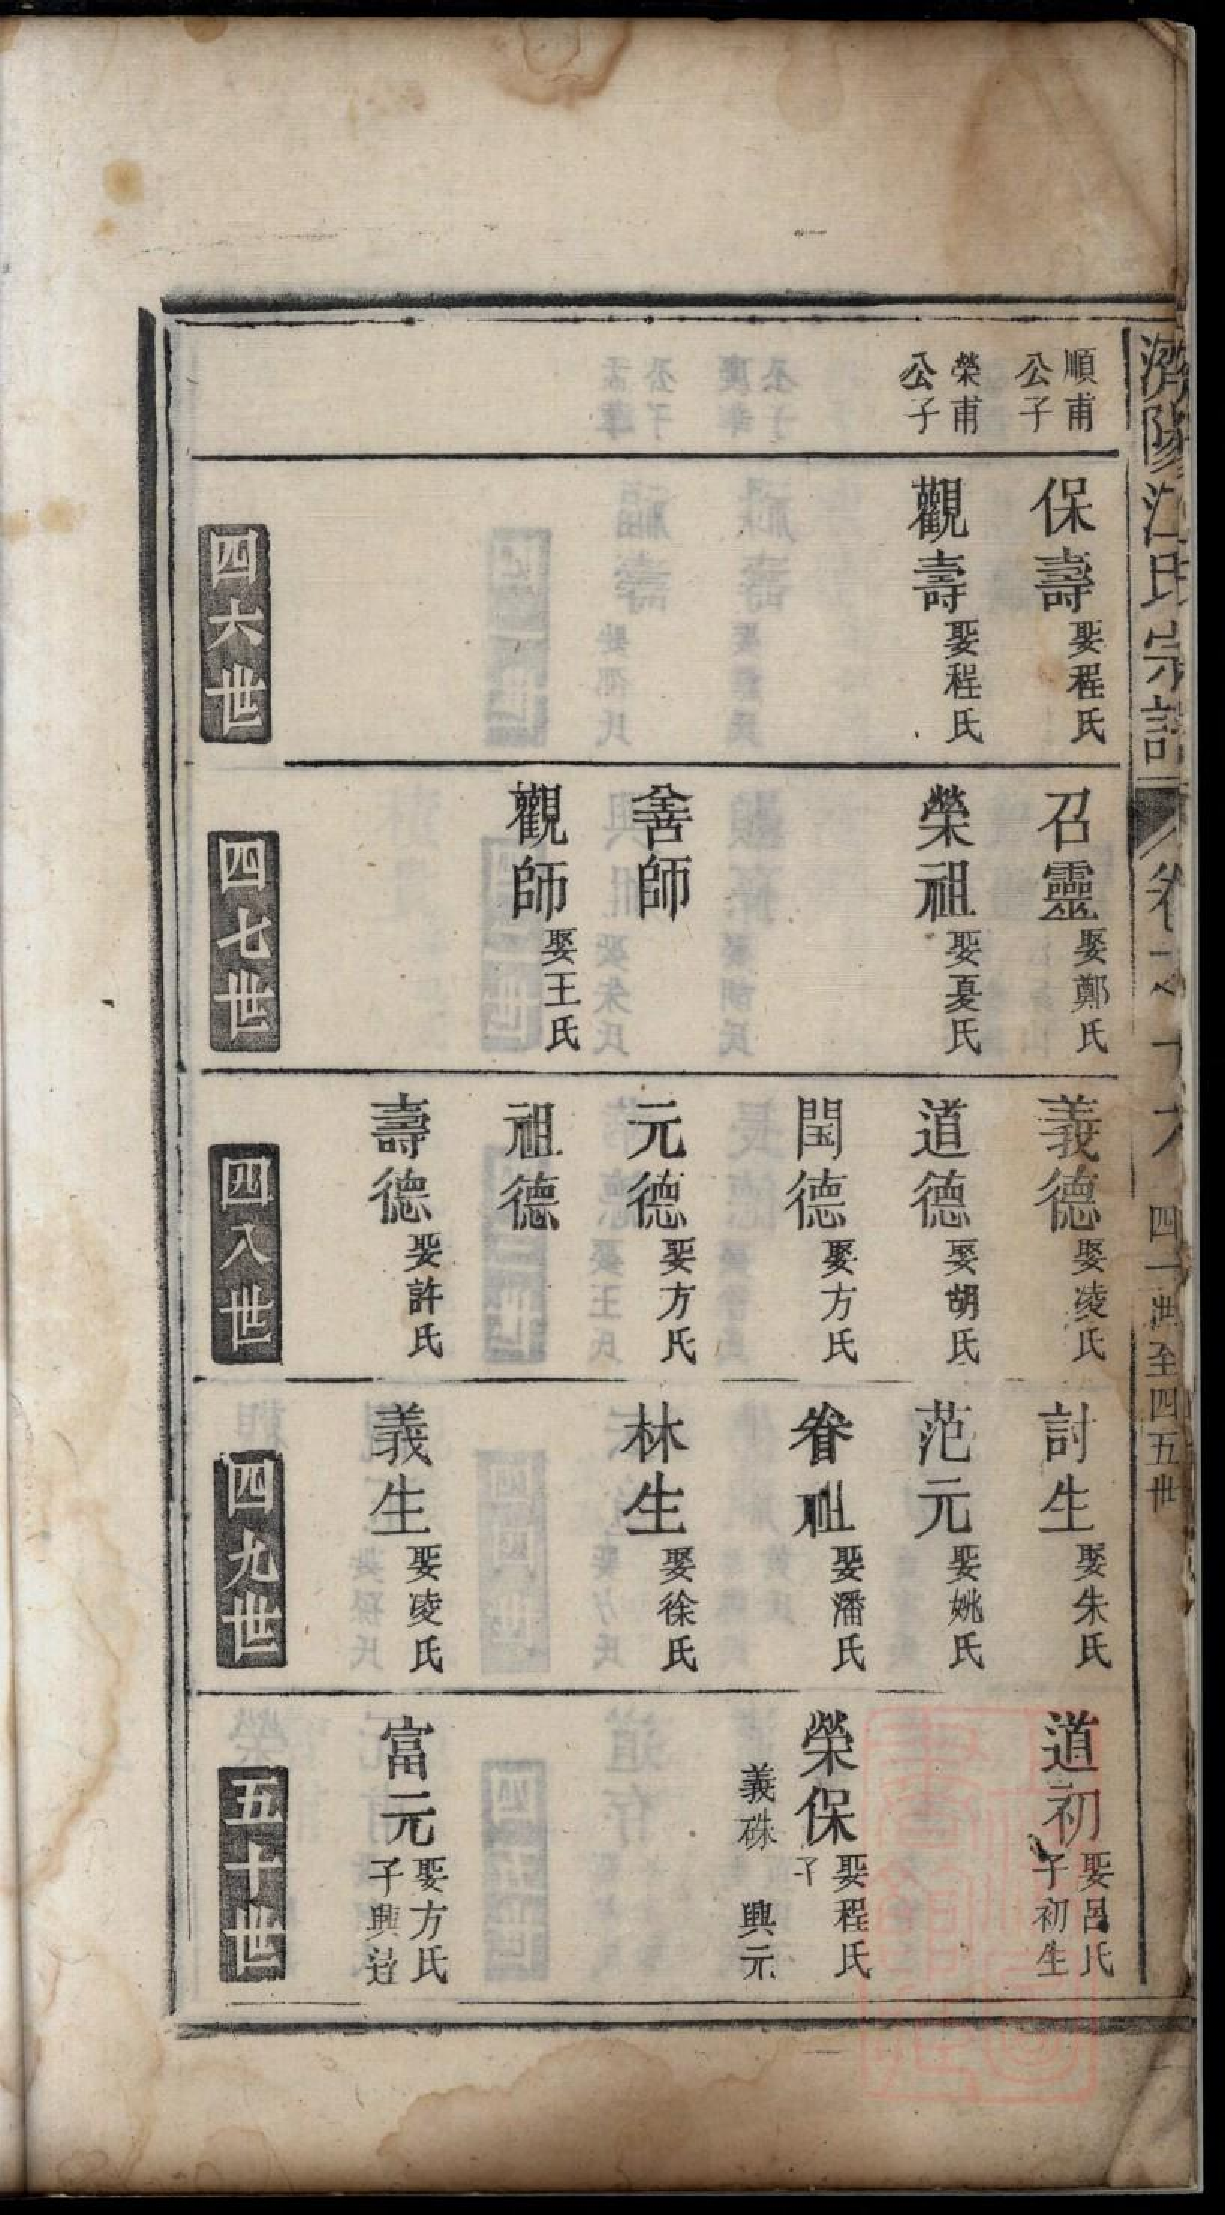 濟陽江氏宗譜
四一世至四五世
順甫公子
榮甫公子
保壽 娶程氏
觀壽 娶程氏
四六世
召靈 娶鄭氏
榮祖 娶夏氏
善師
觀師 娶王氏
四七世
義德 娶凌氏
道德 娶胡氏
閏德 娶方氏
元德 娶方氏
祖德
壽德 娶許氏
四八世
討生 娶朱氏
范元 娶姚氏
眷祖 娶潘氏
林生 娶徐氏
義生 娶凌氏
四九世
道初 娶呂氏
子初生
榮保 娶程氏
子
義硃 興元
富元 娶方氏
子興
五十世